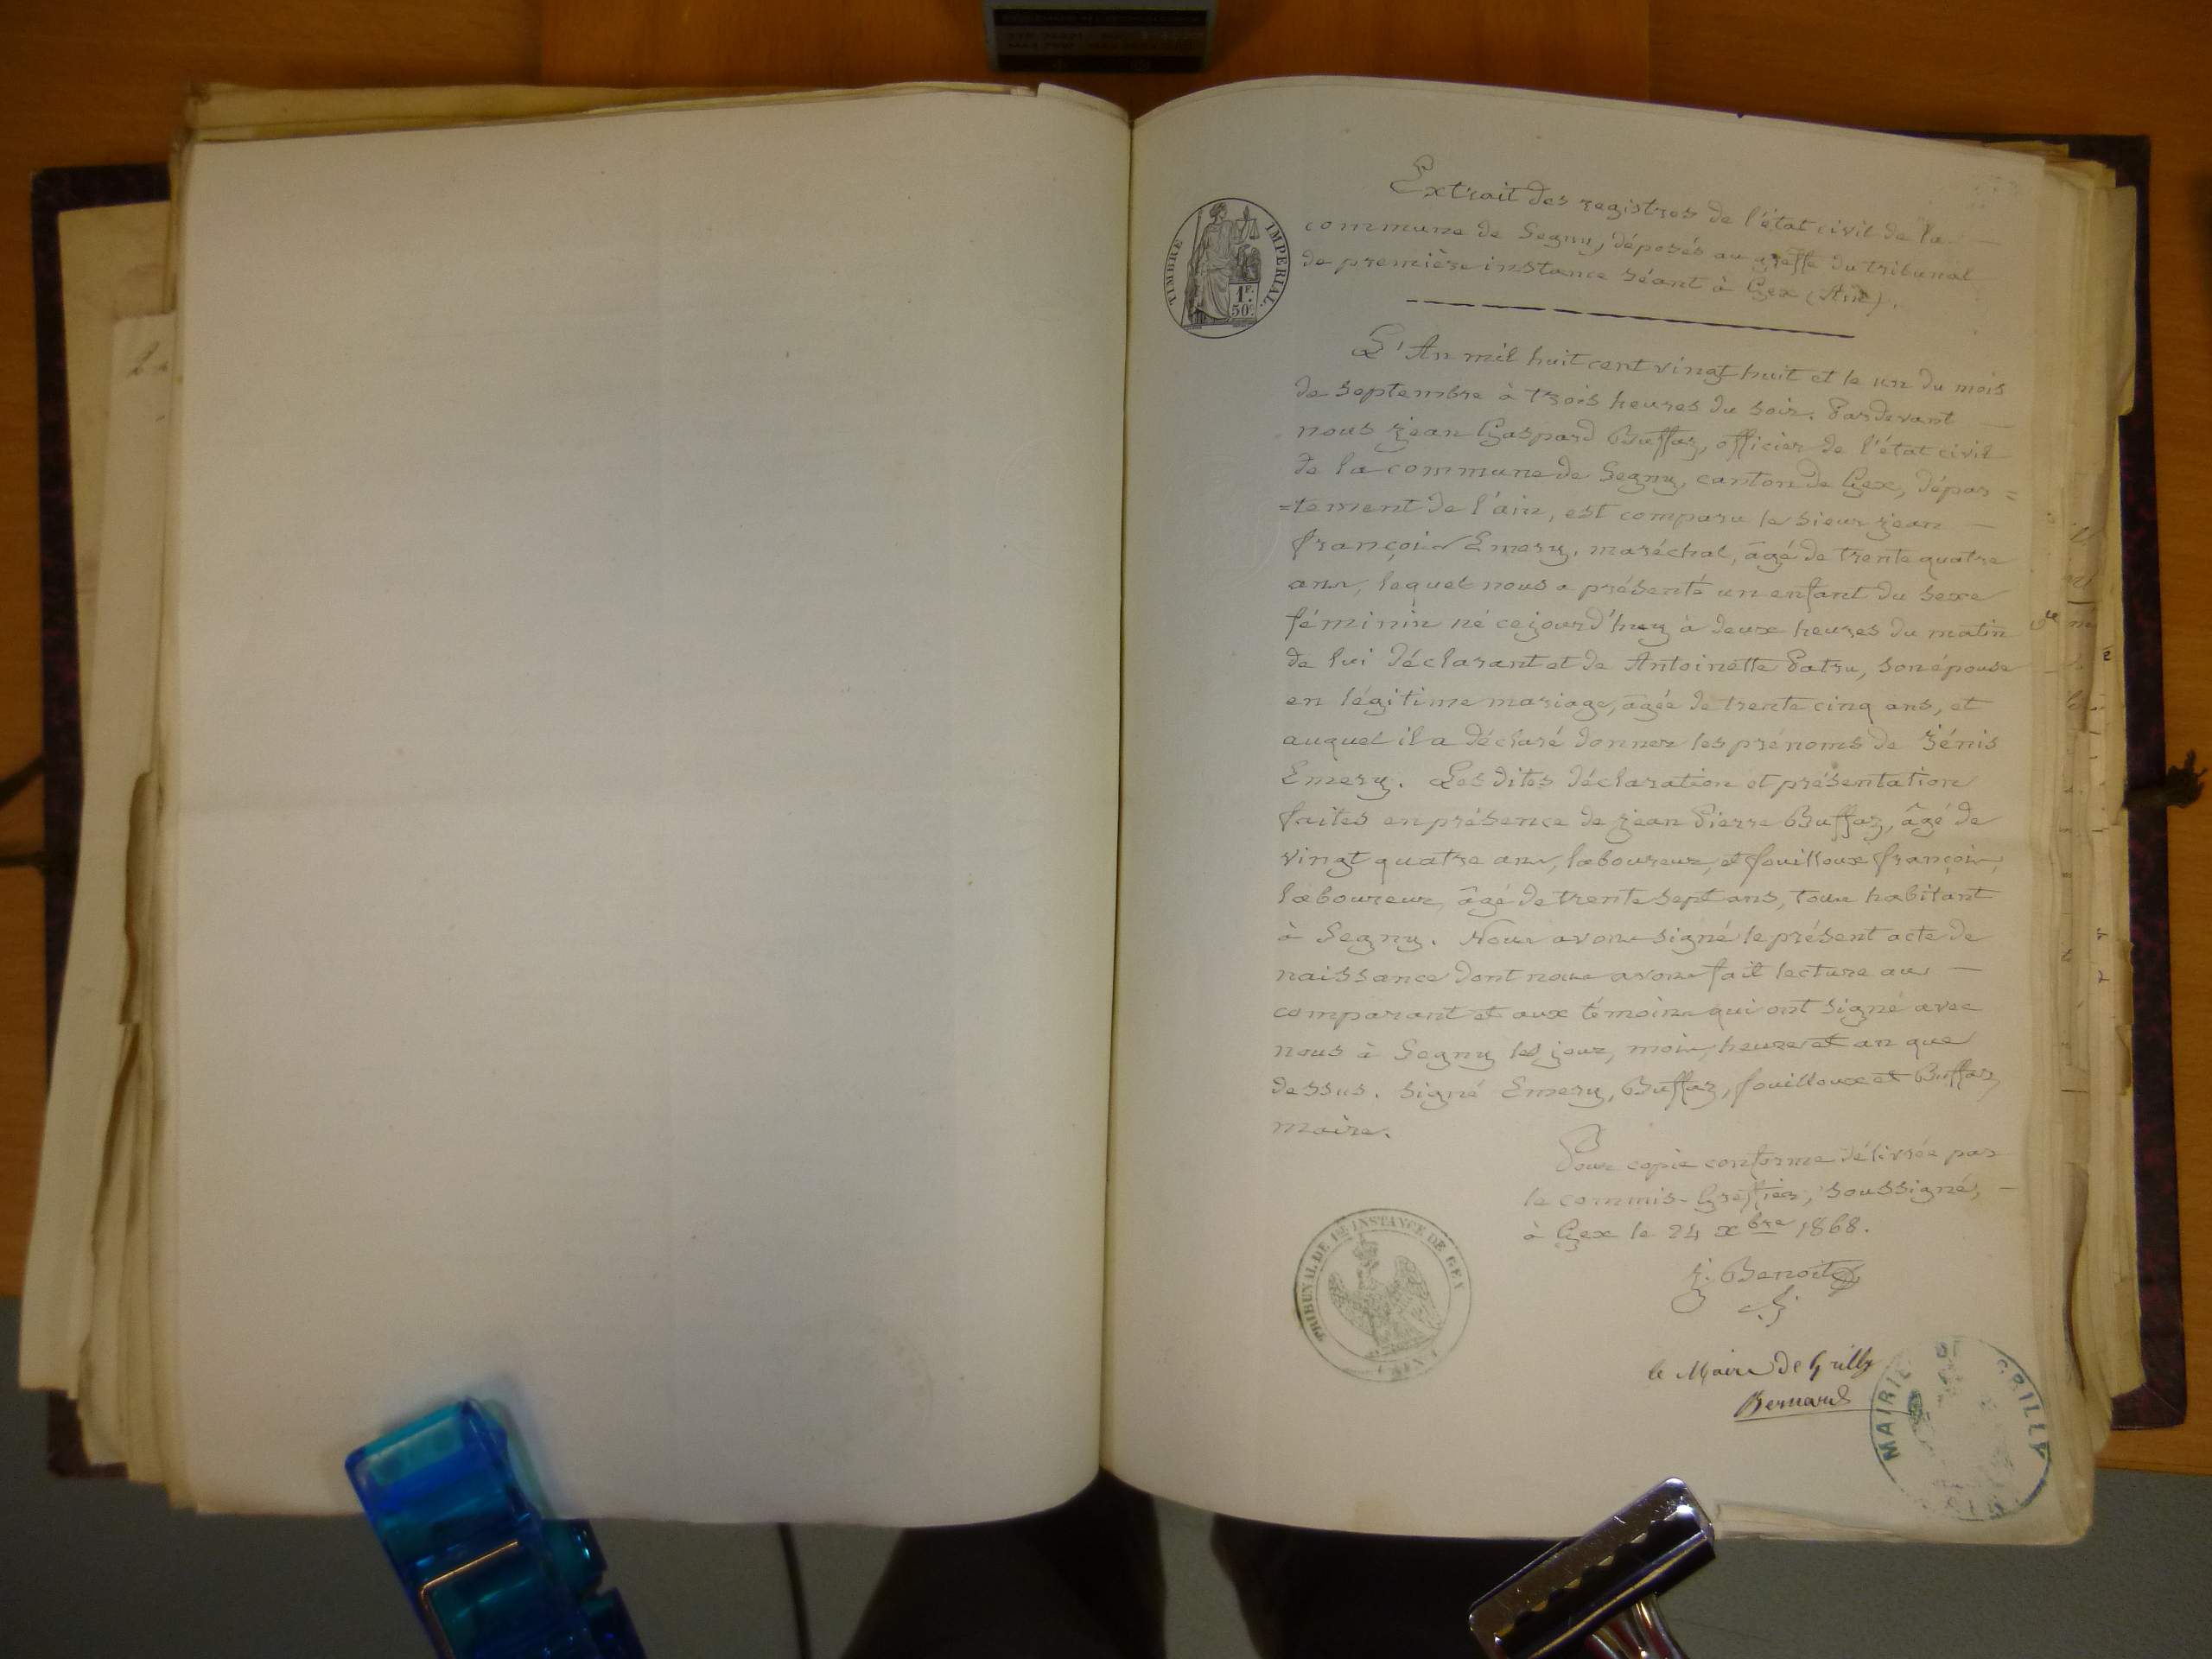 Extrait des registres de l'état civil de la
commune de Segny, déposés au greffe du tribunal
de première instance séant à Gex (Ain).
TIMBRE IMPERIAL.
1F.
50c.
L'An mil huit cent vingt huit et le un du mois
de septembre à trois heures du soir. Pardevant
nous jean Gaspard Buffaz, officier de l'état civil
de la commune de Segny, canton de Gex, dépar=
=tement de l'ain, est comparu le sieur jean
françois Emery, maréchal, âgé de trente quatre
ans, lequel nous a présenté un enfant du sexe
féminin né cejourd'huy à deux heures du matin
de lui déclarant et de Antoinette Patru, son épouse
en légitime mariage, âgée de trente cinq ans, et
auquel il a déclaré donner les prénoms de jénis
Emery. Les dites déclaration et présentation
faites en présence de jean Pierre Buffaz, âgé de
vingt quatre ans, laboureur, et fouilloux françois,
laboureur, âgé de trente sept ans, tous habitant
à Segny. Nous avons signé le présent acte de
naissance dont nous avons fait lecture au
comparant et aux témoins qui ont signé avec
nous à Segny les jour, mois, heure et an que
dessus. signé Emery, Buffaz, fouilloux et Buffaz,
maire.
Pour copie conforme délivrée par
le commis-Greffier, soussigné,
à Gex le 24 xbre 1868.
j. Benoit
TRIBUNAL DE 1re INSTANCE DE GEX
(AIN)
le Maire de Grilly
Bernard
MAIRIE GRILLY